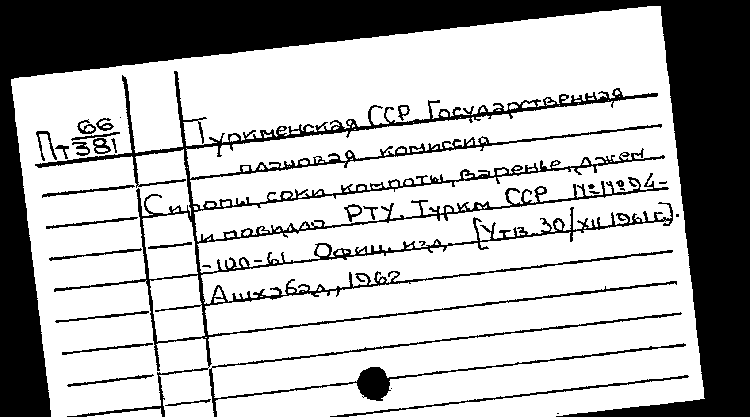 Пт 66/381
Туркменская ССР. Государственная
плановая комиссия
Сиропы, соки, компоты, варенье, джем
и повидло РТУ. Туркм ССР №№94-
-100-61. Офиц. изд. [Утв. 30/XII 1961г.].
Ашхабад, 1962.